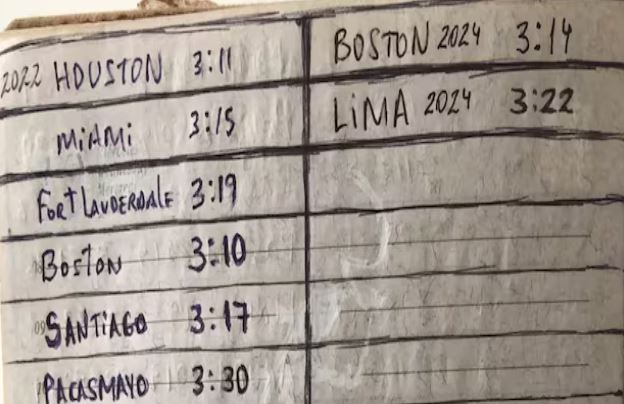 2022 HOUSTON 3:11
MiAMi 3:15
FORT LAUDERDALE 3:19
BOSTON 3:10
SANTiAGO 3:17
PACASMAYO 3:30
BOSTON 2024 3:14
LiMA 2024 3:22